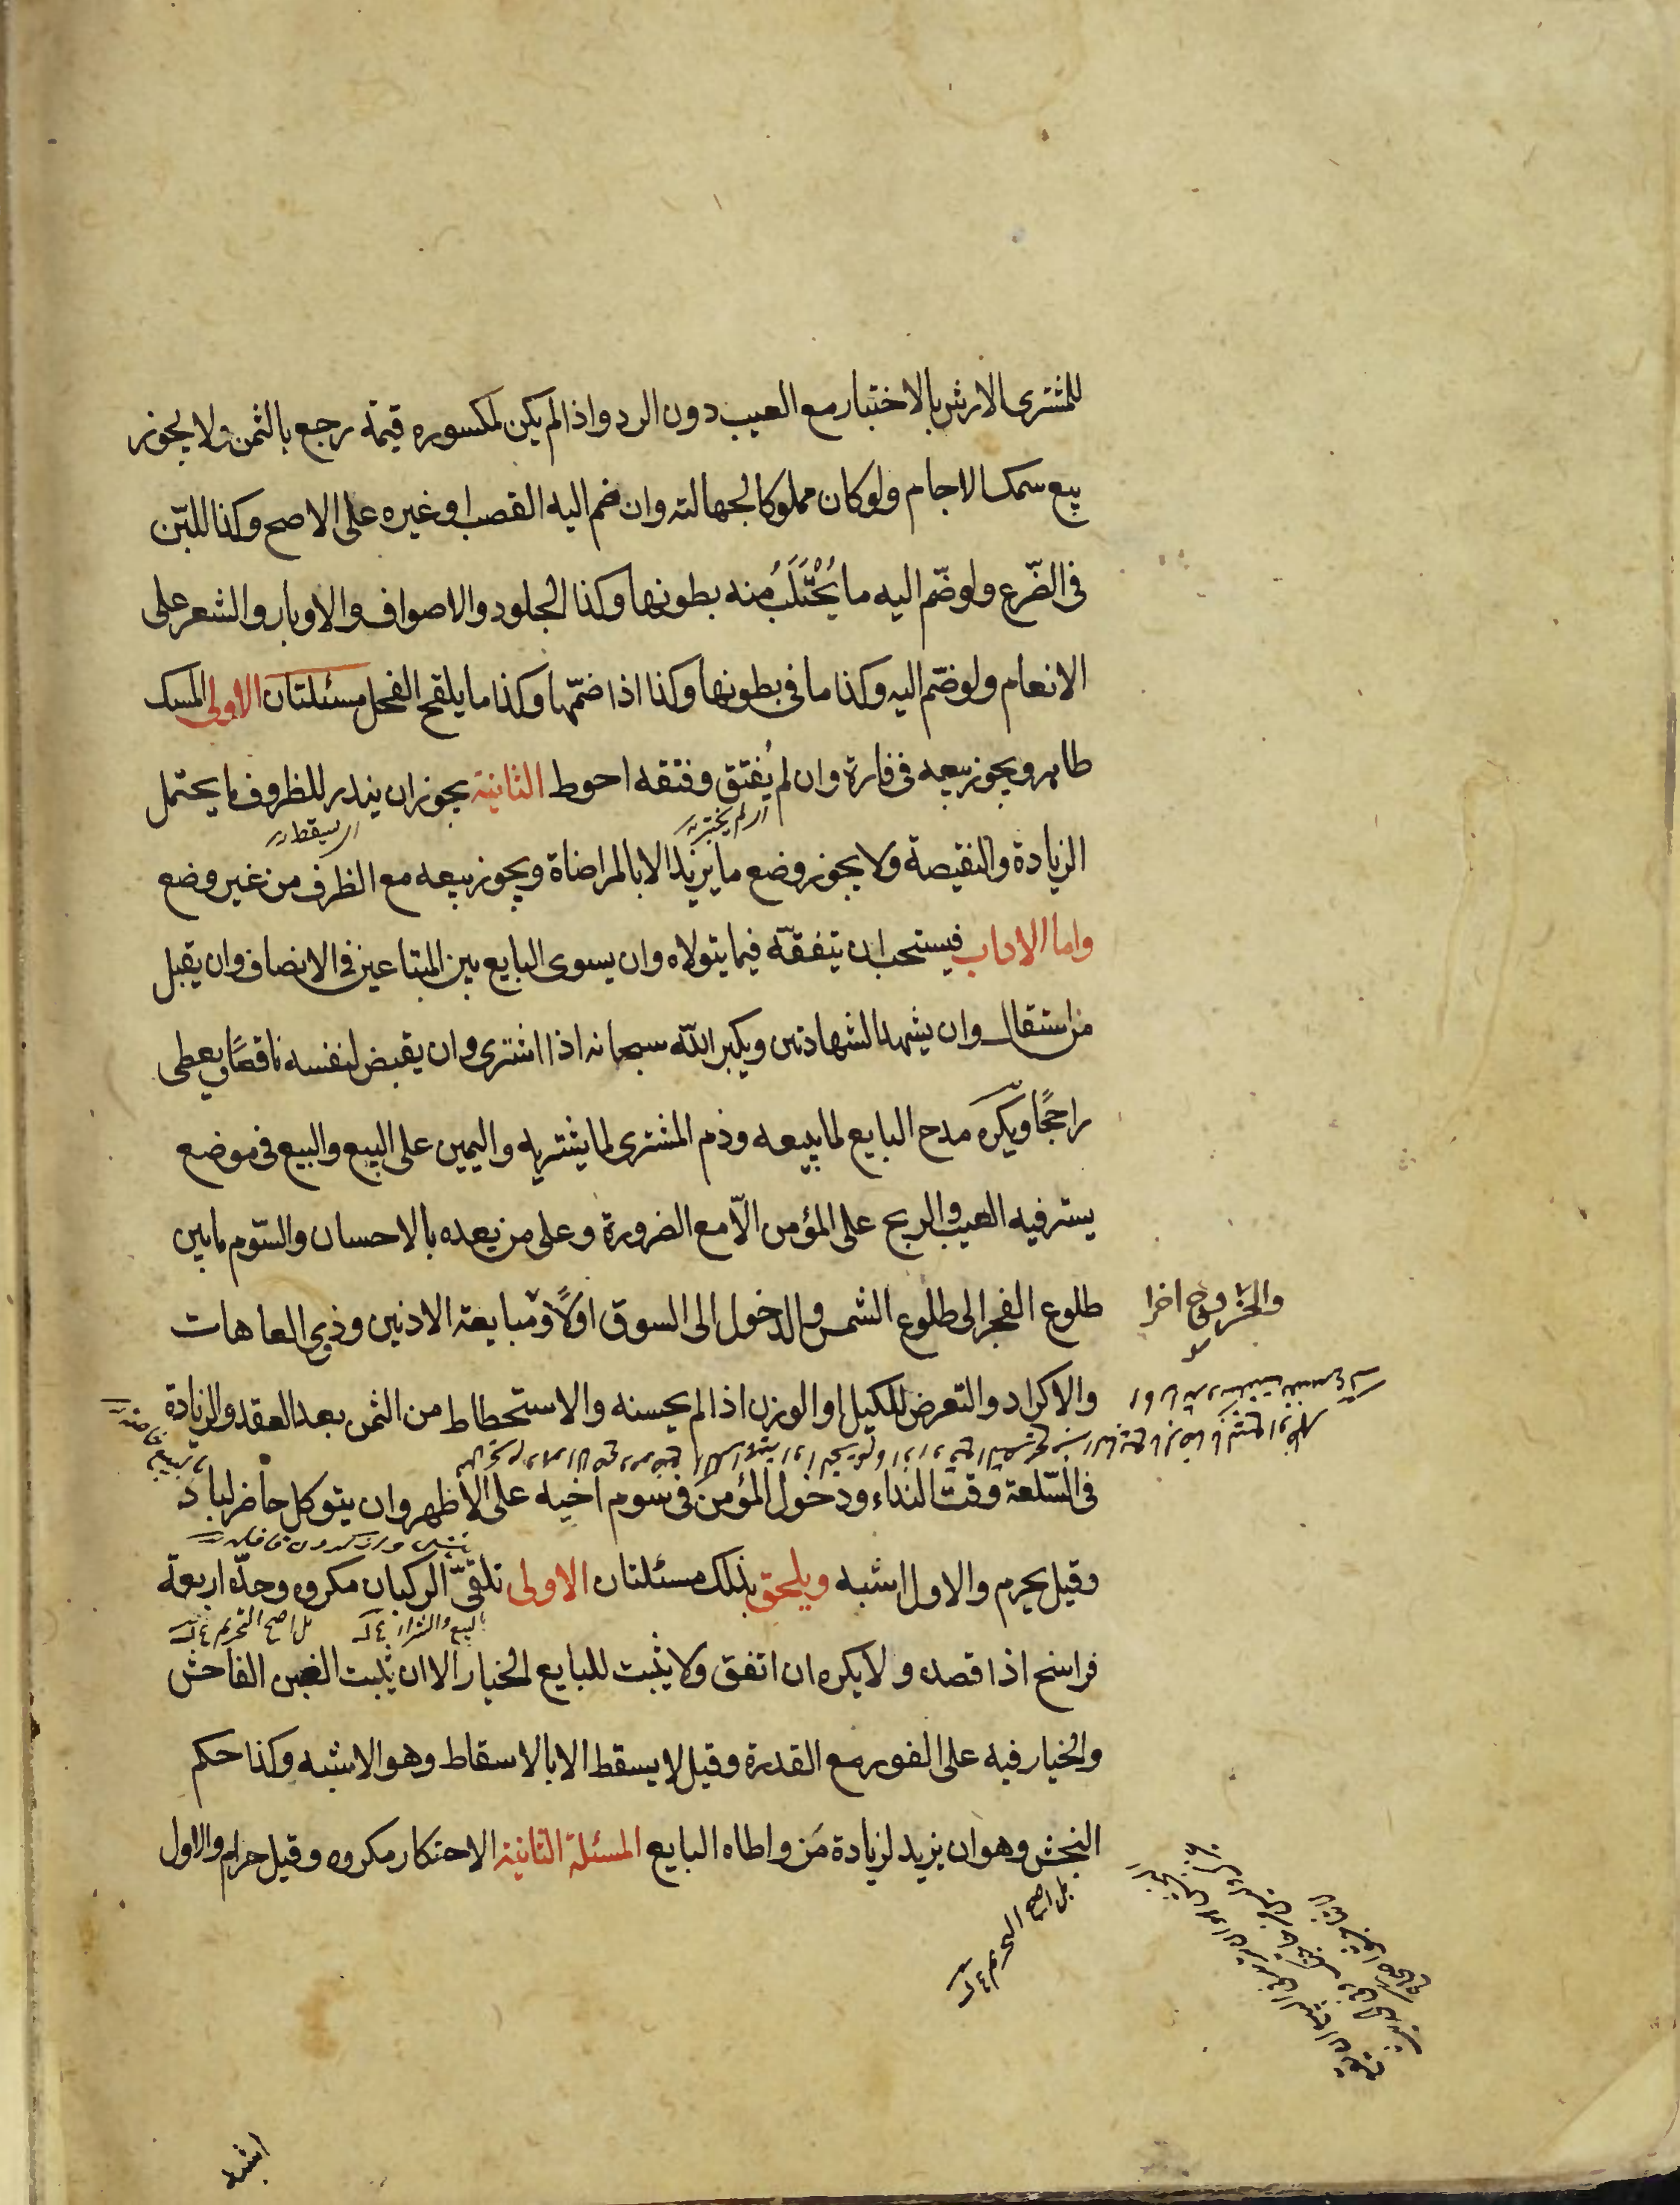 للمشترى الارش بالاختبار مع العيب دون الرد واذا لم يكن لمكسوره قيمة رجع بالثمن ولا يجوز
بيع سمك الاجام ولو كان مملوكا لجهالته وان ضم اليه القصب او غيره على الاصح وكذا اللبن
فى الضّرع ولو ضّم اليه ما يُحْتَلَبُ منه بطونها وكذا الجلود والاصواف والاوبار والشعر على
الانعام ولو ضّم اليه وكذا ما فى بطونها وكذا اذا ضمّها وكذا ما يلقح الفحل مسئلتان الاولى المسك
طاهر ويجوز بيعه فى فارة وان لم يُفتق وفتقه احوط الثانية يجوز ان يندر للظروف ما يحتمل
الزيادة والنقيصة ولا يجوز وضع ما يزيد الا بالمراضاة ويجوز بيعه مع الظرف من غير وضع
واما الاداب فيستحب ان يتفقّه فيما يتولاه وان يسوى البايع بين المبتاعين فى الانصاف وان يقبل
من استقال وان يشهد الشهادتين ويكبر الله سبحانه اذا اشترى وان يقبض لنفسه ناقصًا ويعطى
راجحًا ويكره مدح البايع لما يبيعه وذم المشترى لما يشتريه واليمين على البيع والبيع فى موضع
يستر فيه العيب والربح على المؤمن الّا مع الضرورة وعلى من يعده بالاحسان والسّوم ما بين
طلوع الفجر الى طلوع الشمس والدخول الى السوق اولًا ومبايعة الادنين وذوى العاهات
والخروج اخرا
والاكراد والتعرض للكيل او الوزن اذا لم يحسنه والاستحطاط من الثمن بعد العقد والزيادة
فى السّلعة وقت النداء ودخول المؤمن فى سوم اخيه على الاظهر وان يتوكل حاضر لباد
وقيل يحرم والاول اشبه ويلحق بذلك مسئلتان الاولى تلقىّ الركبان مكروه وحدّه اربعة
بالبيع والشراء
بل اصح التحريم
فراسخ اذا قصده ولا يكره ان اتفق ولا يثبت للبايع الخيار الا ان يثبت الغبن الفاحش
والخيار فيه على الفور مع القدرة وقيل لا يسقط الا بالاسقاط وهو الاشبه وكذا حكم
النجش وهو ان يزيد لزيادة مَن واطاه البايع المسئلة الثانية الاحتكار مكروه وقيل حرام والاول
بل اصح التحريم
اشبه